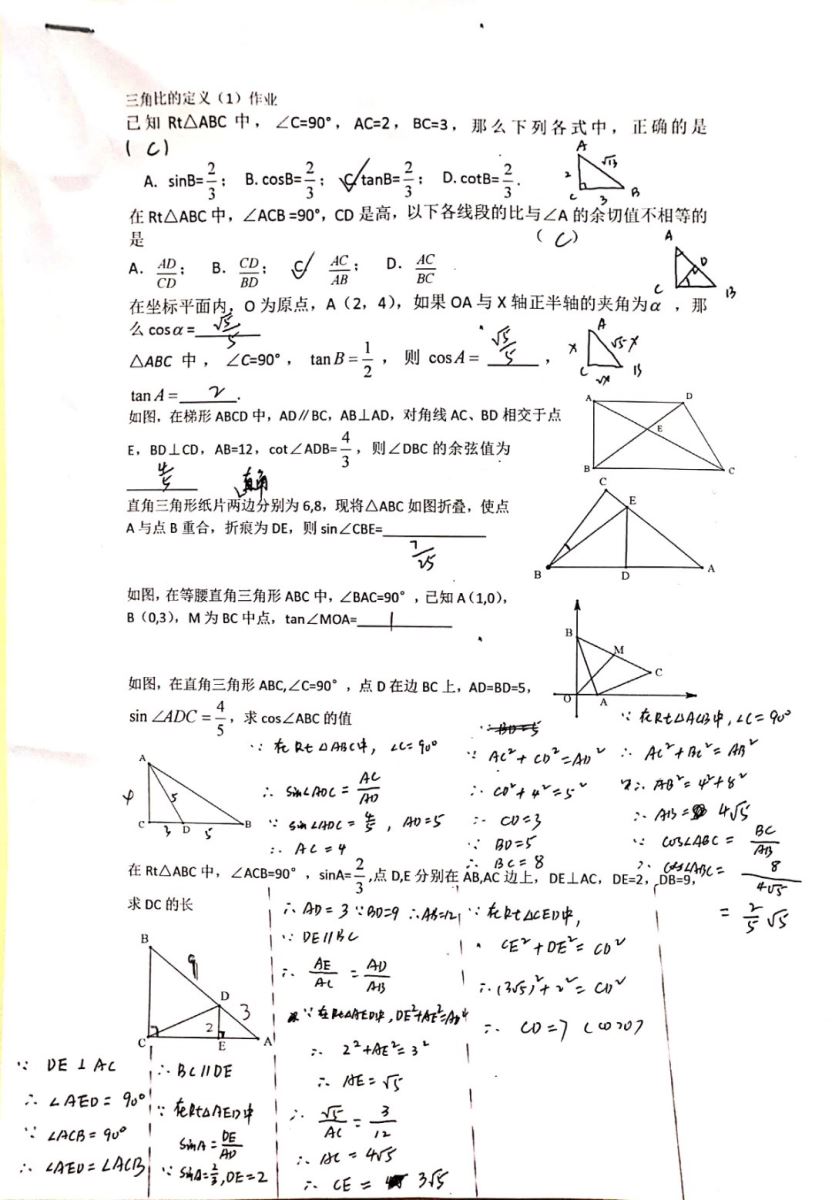 三角比的定义（1）作业
已知 Rt△ABC 中，∠C=90°，AC=2，BC=3，那么下列各式中，正确的是
( C )
A
√13
2
C
3
B
A. sinB=2/3； B. cosB=2/3； C. tanB=2/3； D. cotB=2/3.
在 Rt△ABC 中，∠ACB =90°，CD 是高，以下各线段的比与∠A 的余切值不相等的
是 ( C )
A. AD/CD； B. CD/BD； C. AC/AB； D. AC/BC
A
D
C
B
在坐标平面内，O 为原点，A（2，4），如果 OA 与 X 轴正半轴的夹角为α，那
么 cosα= √5/5
△ABC 中，∠C=90°，tan B=1/2，则 cos A= √5/5，
tan A= 2.
A
x
√5x
C
2x
B
如图，在梯形 ABCD 中，AD∥BC，AB⊥AD，对角线 AC、BD 相交于点
E，BD⊥CD，AB=12，cot∠ADB=4/3，则∠DBC 的余弦值为
4/5
A
D
E
B
C
直角
直角三角形纸片两边分别为 6,8，现将△ABC 如图折叠，使点
A 与点 B 重合，折痕为 DE，则 sin∠CBE=
7/25
C
E
B
D
A
如图，在等腰直角三角形 ABC 中，∠BAC=90°，已知 A（1,0），
B（0,3），M 为 BC 中点，tan∠MOA= 1
B
M
C
O
A
如图，在直角三角形 ABC,∠C=90°，点 D 在边 BC 上，AD=BD=5，
sin ∠ADC = 4/5，求 cos∠ABC 的值
A
4
5
C
3
D
5
B
∵ 在Rt△ABC中，∠C=90°
∴ sin∠ADC = AC/AD
∵ sin∠ADC = 4/5，AD=5
∴ AC=4
∵ BD=5
∵ AC²+CD²=AD²
∴ CD²+4²=5²
∴ CD=3
∵ BD=5
∴ BC=8
∵ 在Rt△ACB中，∠C=90°
∴ AC²+BC²=AB²
∴ AB²=4²+8²
∴ AB= 4√5
∵ cos∠ABC = BC/AB
∴ cos∠ABC = 8/4√5
= 2/5 √5
在 Rt△ABC 中，∠ACB=90°，sinA=2/3,点 D,E 分别在 AB,AC 边上，DE⊥AC，DE=2，DB=9，
求 DC 的长
B
9
D
3
2
C
E
A
∵ DE⊥AC
∴ ∠AED=90°
∵ ∠ACB=90°
∴ ∠AED=∠ACB
∴ BC∥DE
∵ 在Rt△AED中
sinA=DE/AD
∵ sinA=2/3,DE=2
∴ AD=3 ∵BD=9 ∴AB=12
∵ DE∥BC
∴ AE/AC = AD/AB
∵ 在Rt△AED中，DE²+AE²=AD²
∴ 2²+AE²=3²
∴ AE=√5
∴ √5/AC = 3/12
∴ AC=4√5
∴ CE= 3√5
∵ 在Rt△CED中，
CE²+DE²=CD²
∴ (3√5)²+2²=CD²
∴ CD=7 (CD>0)